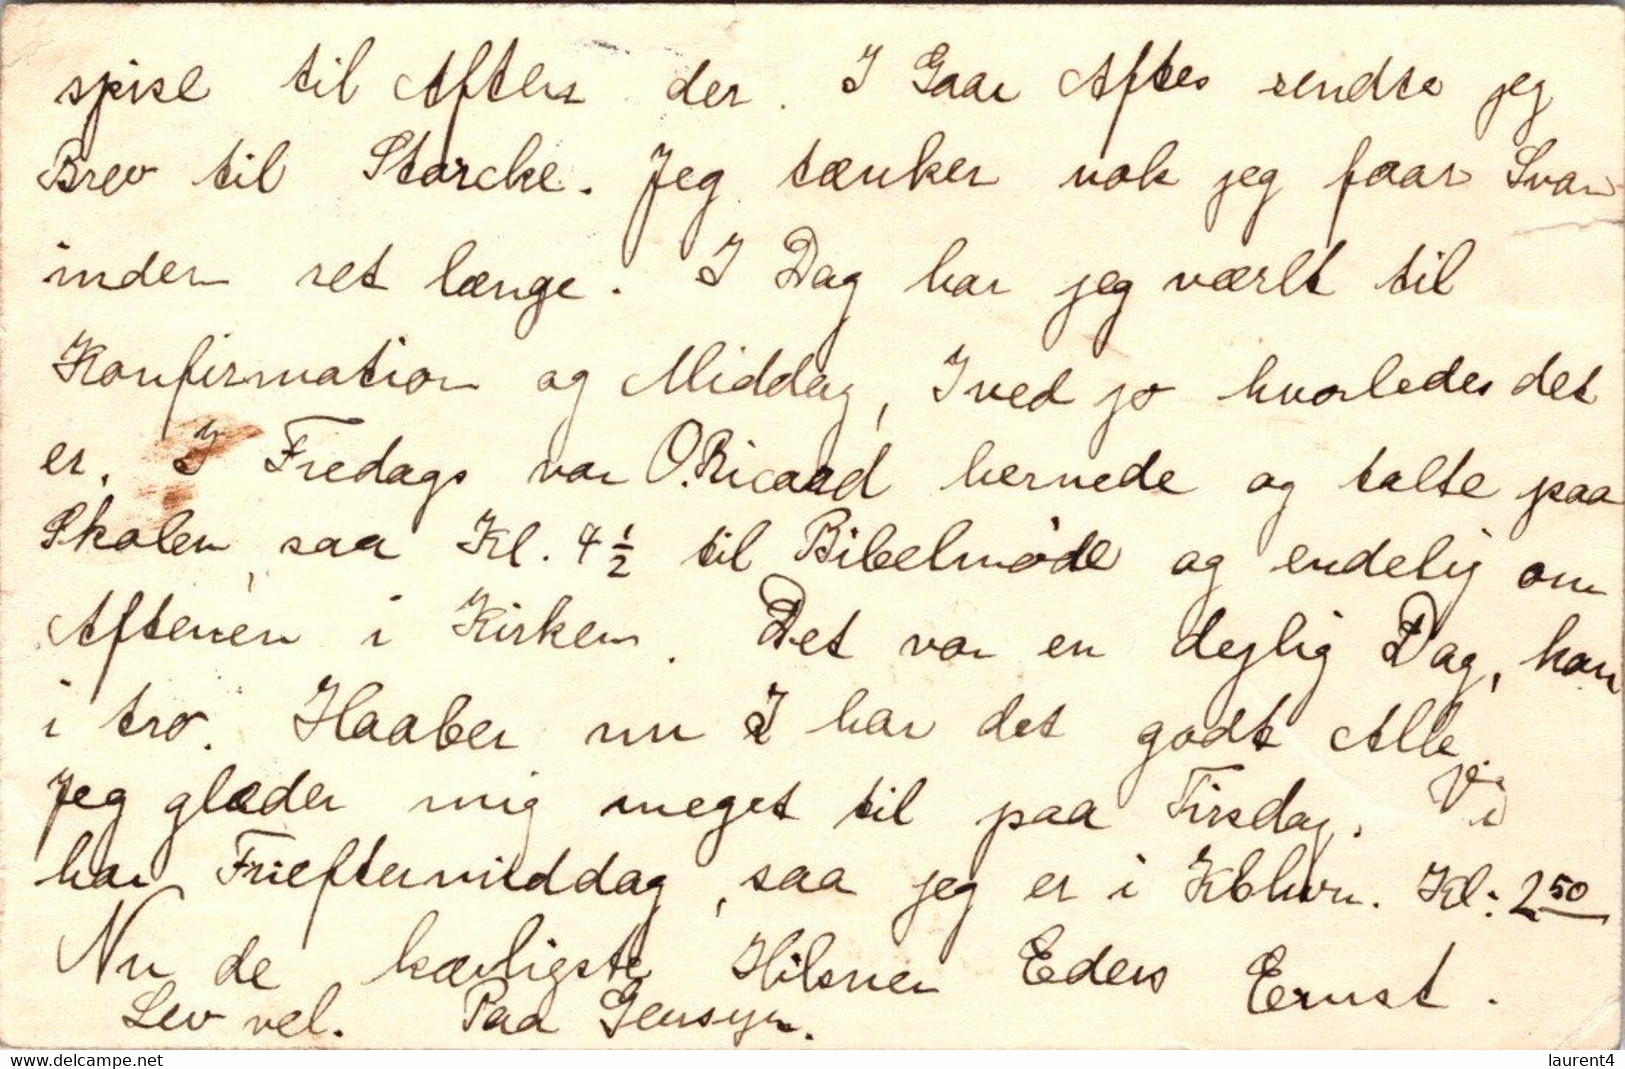 spise til Aftens der. I Gaar Aftes sendte jeg
Brev til Starcke. Jeg tænker nok jeg faar Svar
inden ret længe. I Dag har jeg værlt til
Konfirmation og Middag, I ved jo hvorledes det
er. I Fredags var O. Ricard hernede og talte paa
Skolen, saa Kl. 4 1/2 til Bibelmøde og endelig om
Aftenen i Kirken. Det var en dejlig Dag, kan
i tro. Haaber nu I har det godt Alle.
Jeg glæder mig meget til paa Tirsdag. Vi
har Frieftermiddag, saa jeg er i Kbhvn. Kl: 2 50
Nu de kærligste Hilsner Eders Ernst.
Lev vel. Paa Gensyn.
www.delcampe.net
laurent4